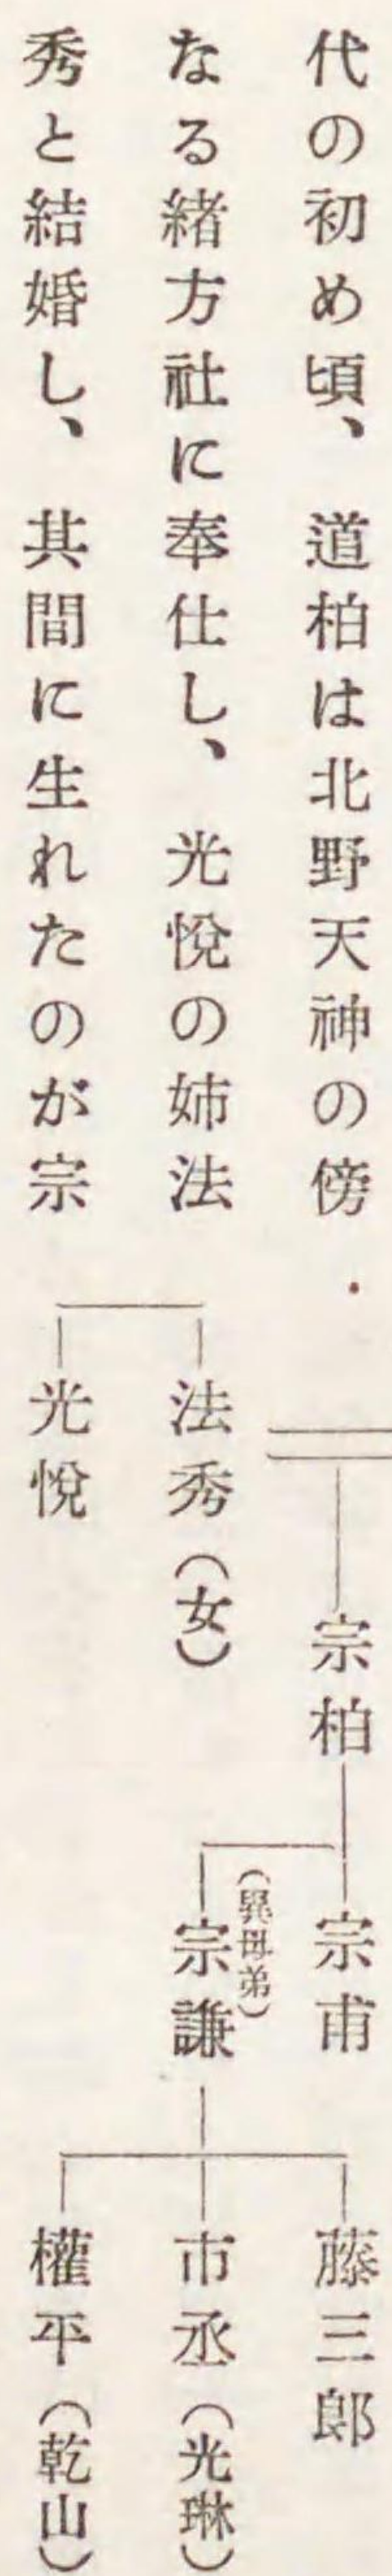 代の初め頃、道柏は北野天神の傍
なる緒方社に奉仕し、光悅の姉法
秀と結婚し、其間に生れたのが宗
法秀（女）
光悅
宗柏
宗甫
（異母弟）
宗謙
藤三郞
市丞（光琳）
權平（乾山）